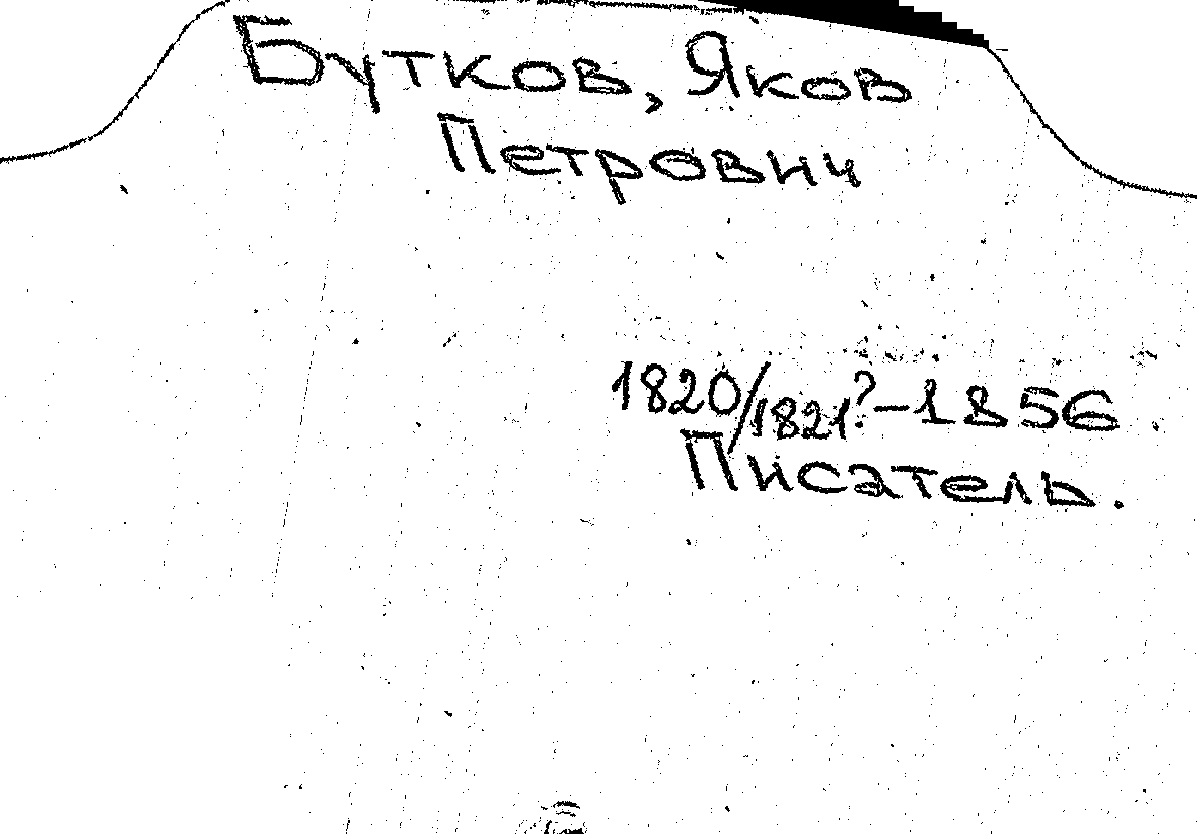 Бутков, Яков
Петрович
1820/1821?-1856.
Писатель.